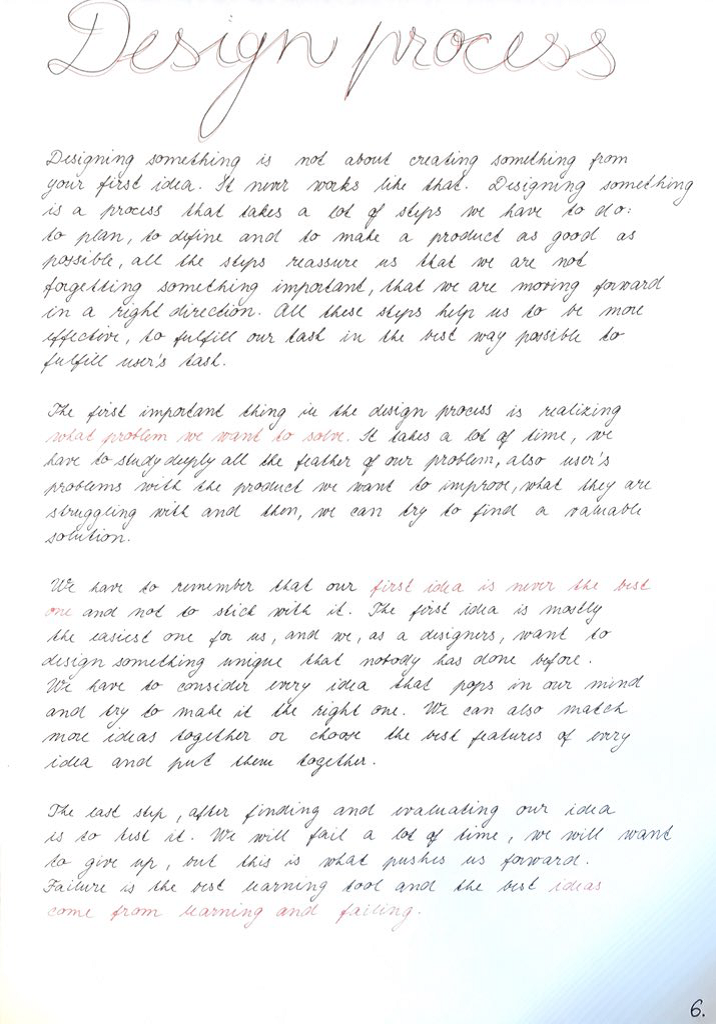 Design process
Designing something is not about creating something from
your first idea. It never works like that. Designing something
is a process that takes a lot of steps we have to do:
to plan, to define and to make a product as good as
possible, all the steps reassure us that we are not
forgetting something important, that we are moving forward
in a right direction. All these steps help us to be more
effective, to fulfill our task in the best way possible to
fulfill user's task.
The first important thing in the design process is realizing
what problem we want to solve. It takes a lot of time, we
have to study deeply all the feather of our problem, also user's
problems with the product we want to improve, what they are
struggling with and then, we can try to find a valuable
solution.
We have to remember that our first idea is never the best
one and not to stick with it. The first idea is mostly
the easiest one for us, and we, as a designers, want to
design something unique that nobody has done before.
We have to consider every idea that pops in our mind
and try to make it the right one. We can also match
more ideas together or choose the best features of every
idea and put them together.
The last step, after finding and evaluating our idea
is to test it. We will fail a lot of time, we will want
to give up, but this is what pushes us forward.
Failure is the best learning tool and the best ideas
come from learning and failing.
6.